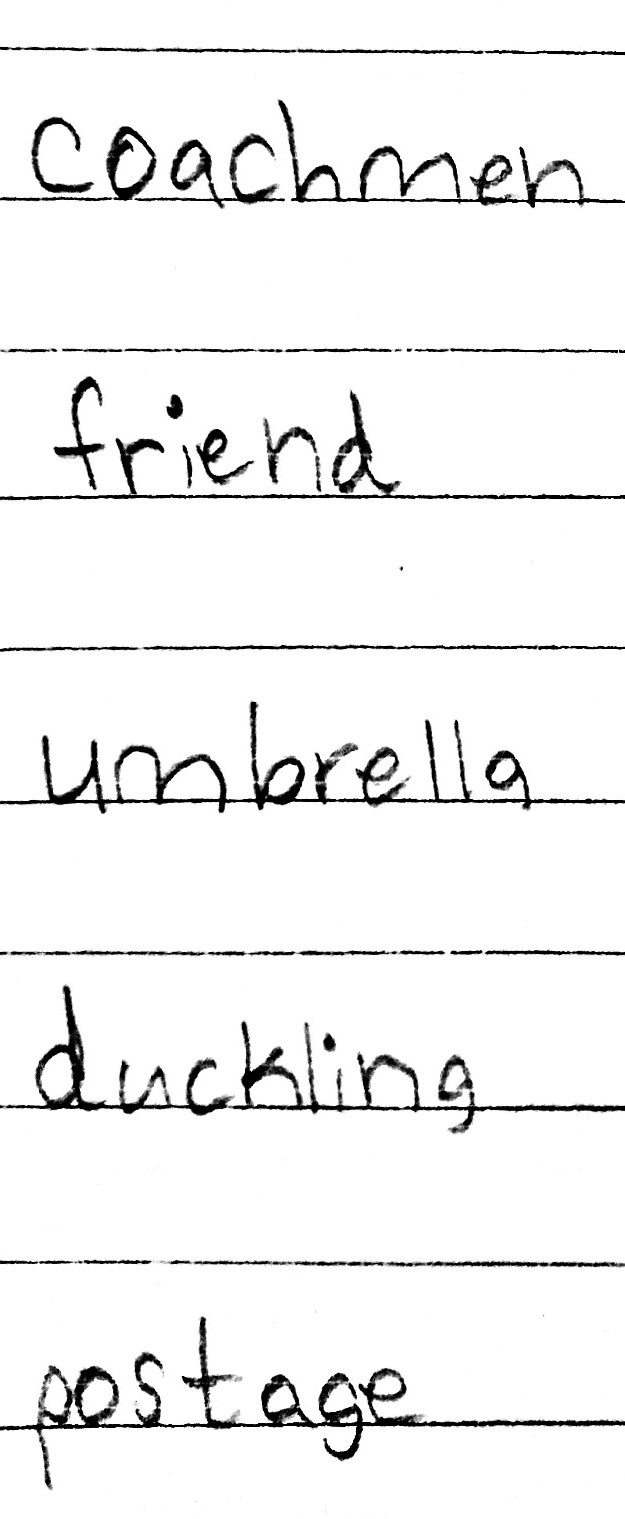 coachmen
friend
umbrella
duckling
postage